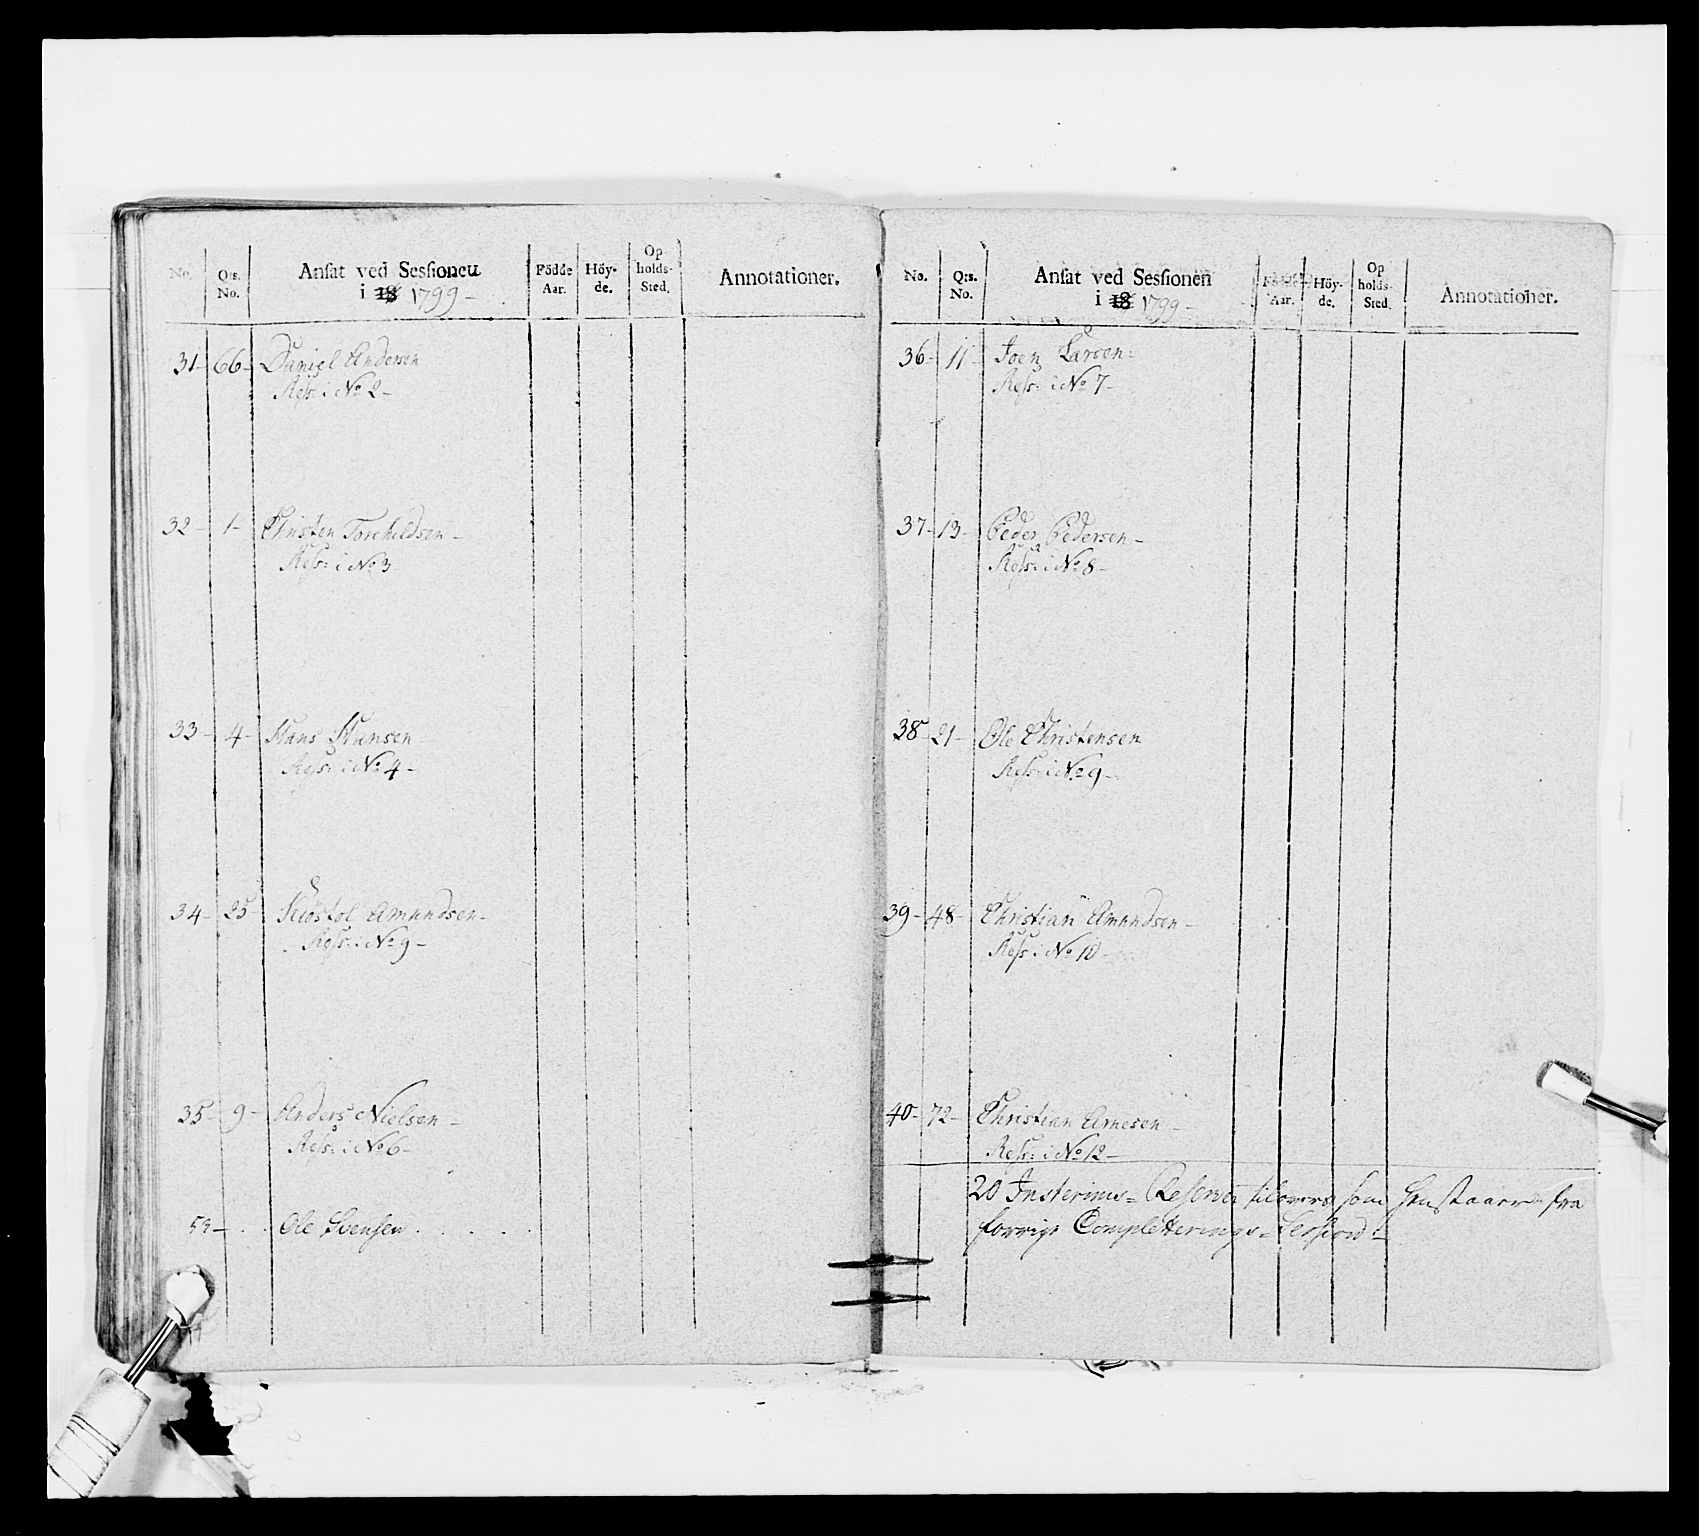 No.
Q:s. No.
Ansat ved Sessionen
i 18 1799 -
Födde Aar.
Höy- de.
Op holds- Sted.
Annotationer.
31- 66- Daniel Andersen
Ress: i No 2-
32- 1- Christen Torchildsen-
Ress: i No 3
33- 4- Hans Hansen
Ress: i No 4-
34- 25 Kiöstol Amundsen-
Ress: i No 9-
35- 9- Anders Nielsen-
Ress: i No 6-
59- . . Ole Svensen . . . .
No.
Q:s. No.
Ansat ved Sessionen
i 18 1799 -
Födde Aar.
Höy- de.
Op holds- Sted.
Annotationer.
36- 11- Joen Larsen:
Ress: i No 7-
37- 13- Peder Pedersen-
Ress: i No 8-
38- 21- Ole Christensen
Ress: i No 9-
39- 48- Christian Amundsen-
Ress: i No 10-
40- 72- Christian Arnesen-
Ress: i No 12-
20 Insterims= Reserver tilovers som henstaar fra
forrige Completterings-Session